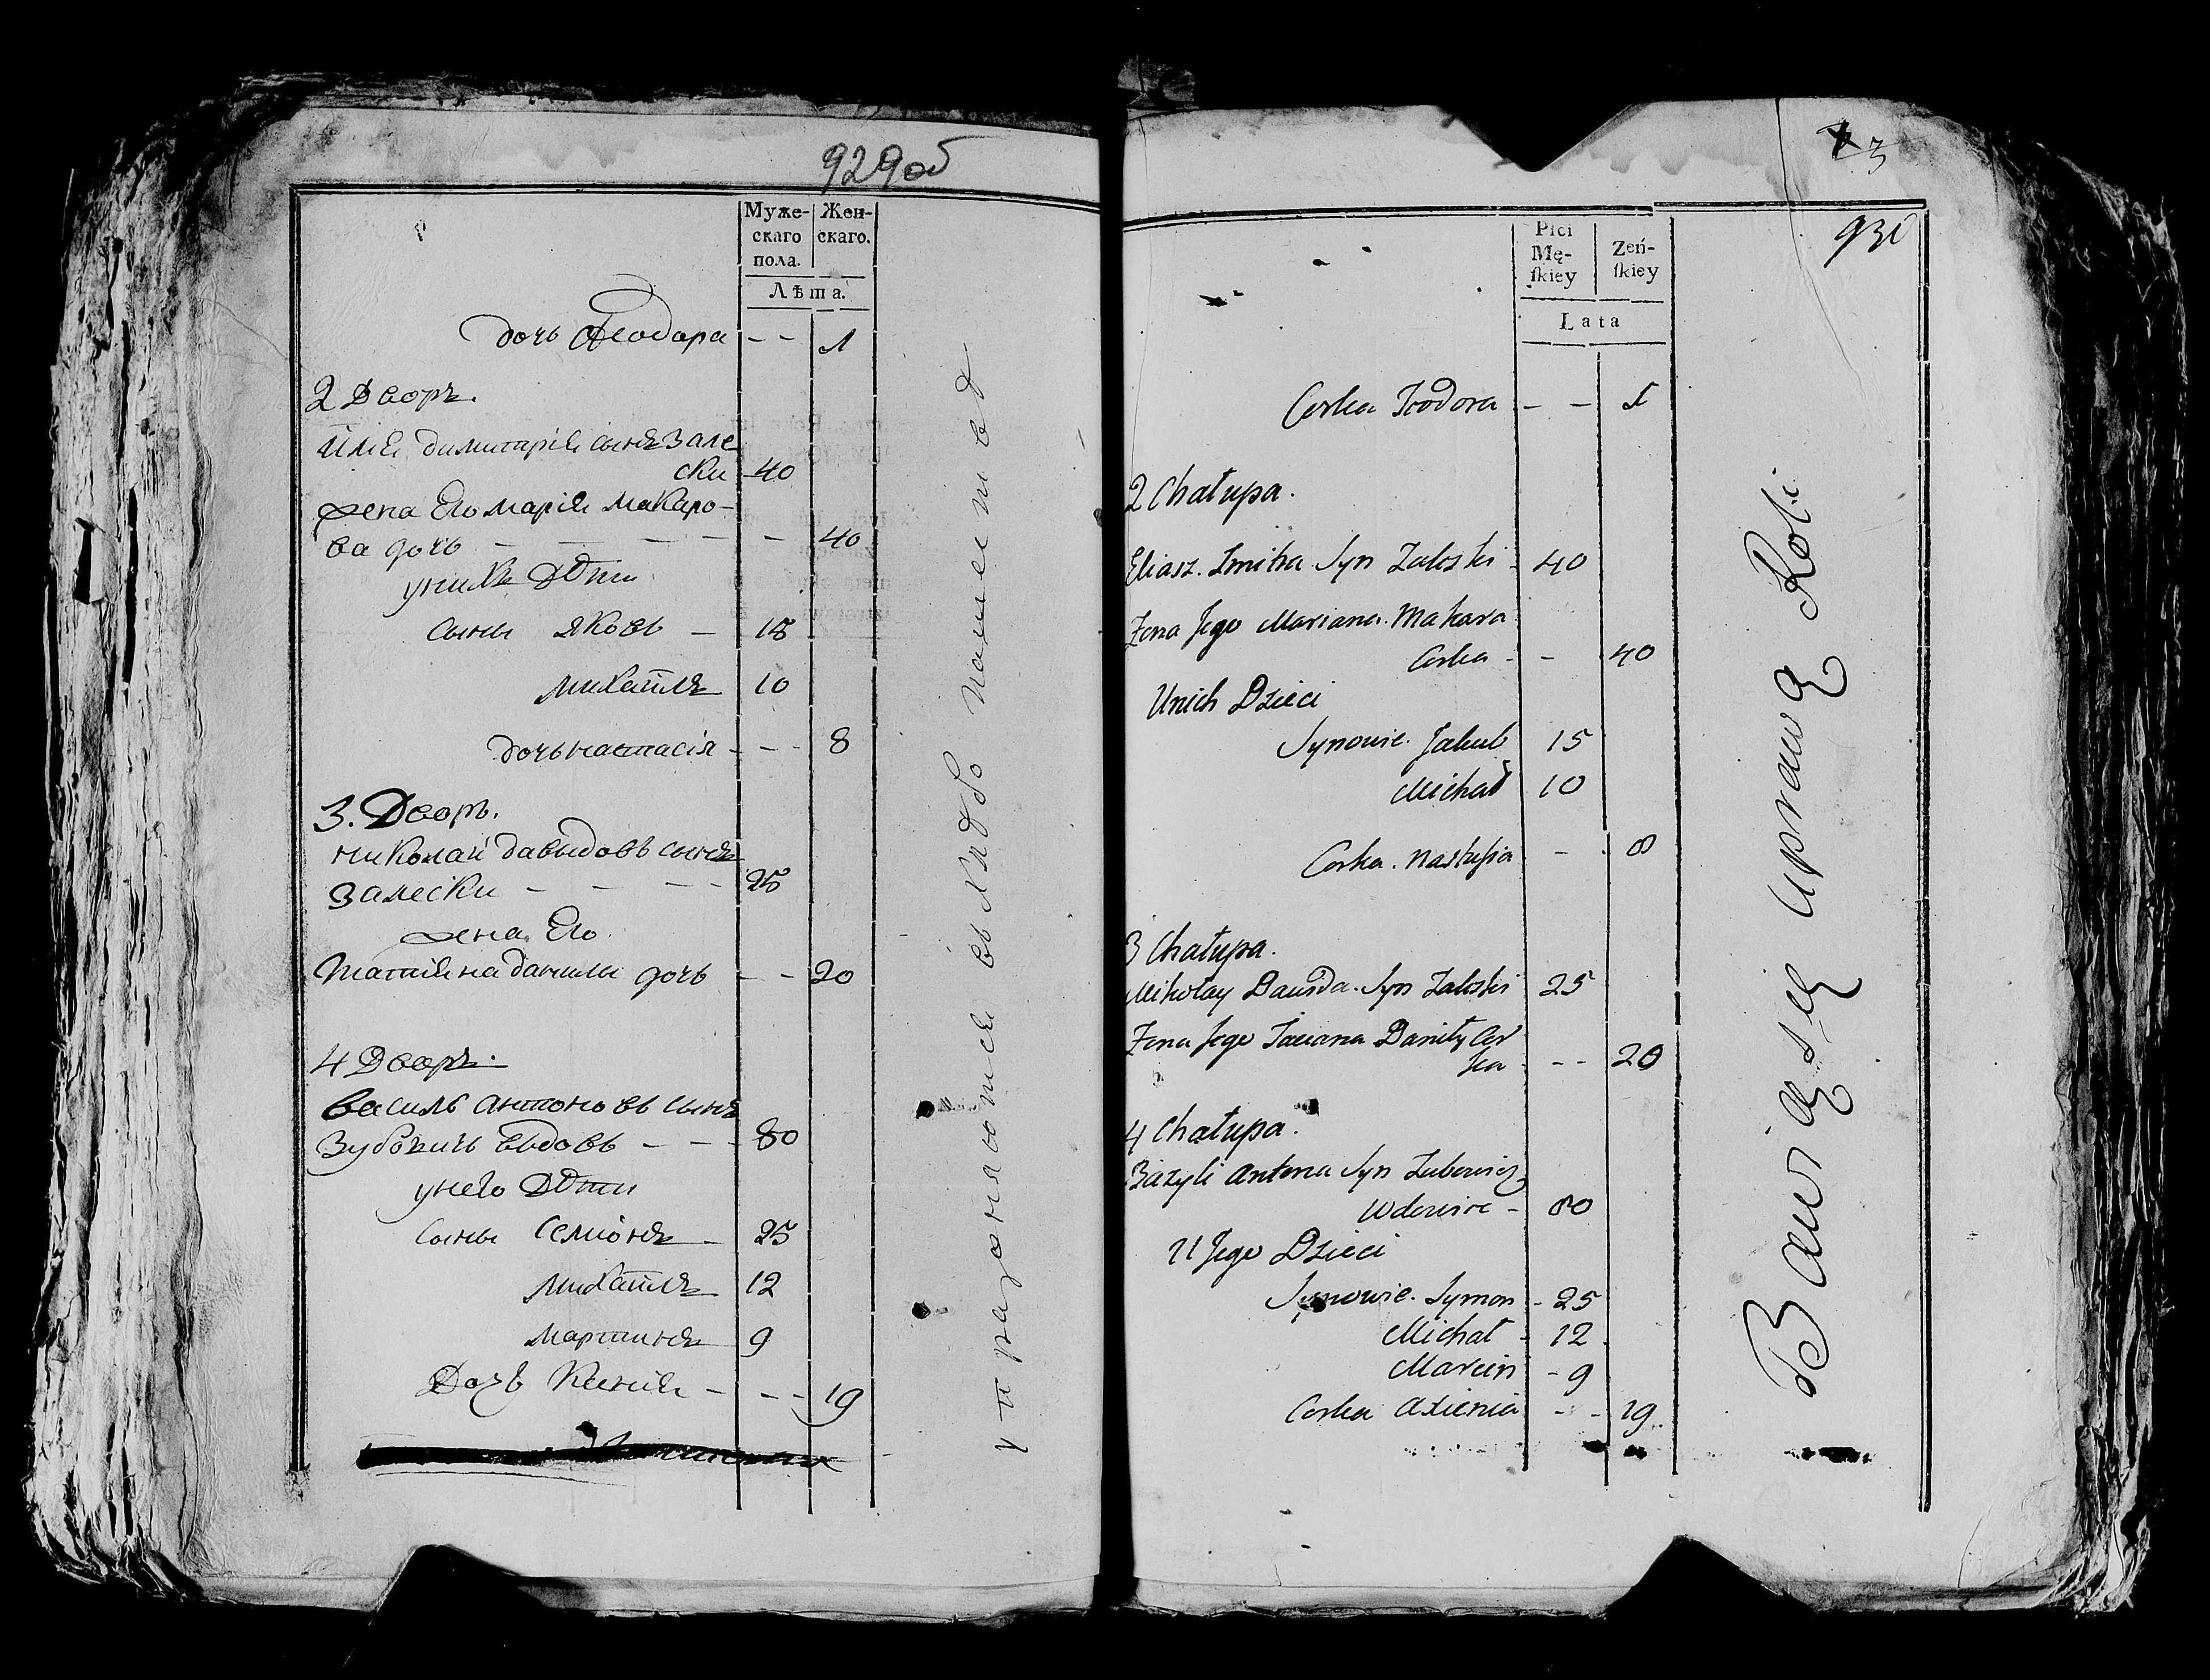 929об
Муже-
скаго
пола.
Жен-
скаго.
Лѣта.
дочь Феодора - - 1
2 Дворъ.
Илия димитрия сынъ Зале
ски - 40
жена Его мария макаро-
ва дочь - - - - - 40
у нихъ Дѣти
сыны яковъ - 15
михайлъ 10
дочь настасія - - - 8
3. Дворъ.
николай давыдовъ сынъ
Залески - - - - 25
жена Его
татияна данилы дочь - - 20
4 Дворъ.
василь антоновъ сынъ
вдовъ - - - 80
у него Дѣти
сыны семионъ - 25
михайлъ 12
мартинъ 9
Дочь - - - 19
упразняются въ
73
930
Płci
Mę-
ſkiey
Zeń-
ſkiey
Lata
Corka Teodora - - 1
2 Chałupa.
Eliasz. Dmitra Syn Zaleski - 40
Zona Jego Mariana. Makara
Corka - - 40
Unich Dzieci
Synowie. Jakub 15
Michał 10
Corka. Nastasia - - 8
3 Chałupa.
Mikołay Dawida. Syn Zaleski 25
Zona Jego Taciana Daniły Cor
ka - - 20
4 Chałupa.
Bazyli Antona Syn Zubowicz
Wdowiec - 80
U Jego Dzieci
Synowie. Symon - 25
Michał - 12
Marcin - 9
Corka Axienia - - 19
Bawiąsię uprawą Roli